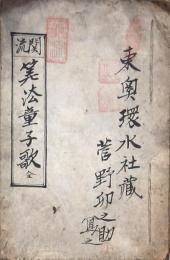 東奥環水社蔵
菅野卯之助
寫之
関流
筭法童子歌 全